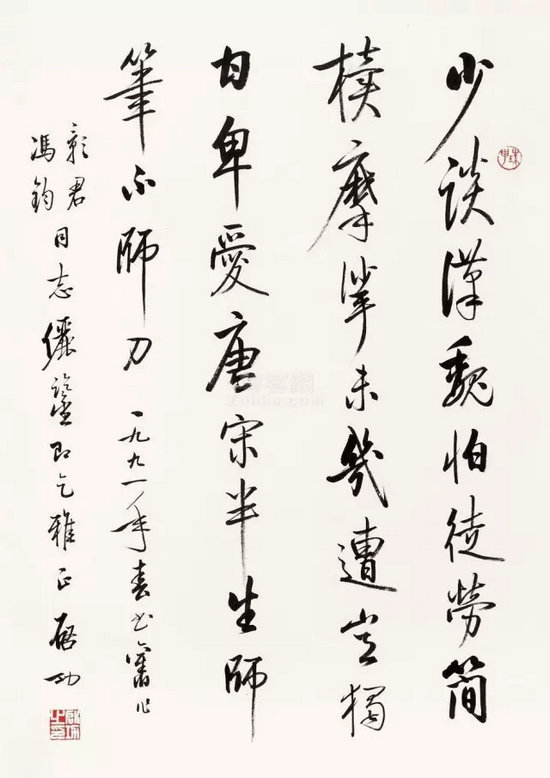 少談漢魏怕徒勞簡
牘摩挲未幾遭豈獨
甘卑愛唐宋半生師
筆不師刀 一九九一年春書舊作
君馮鈞同志儷鑒即乞雅正 啓功